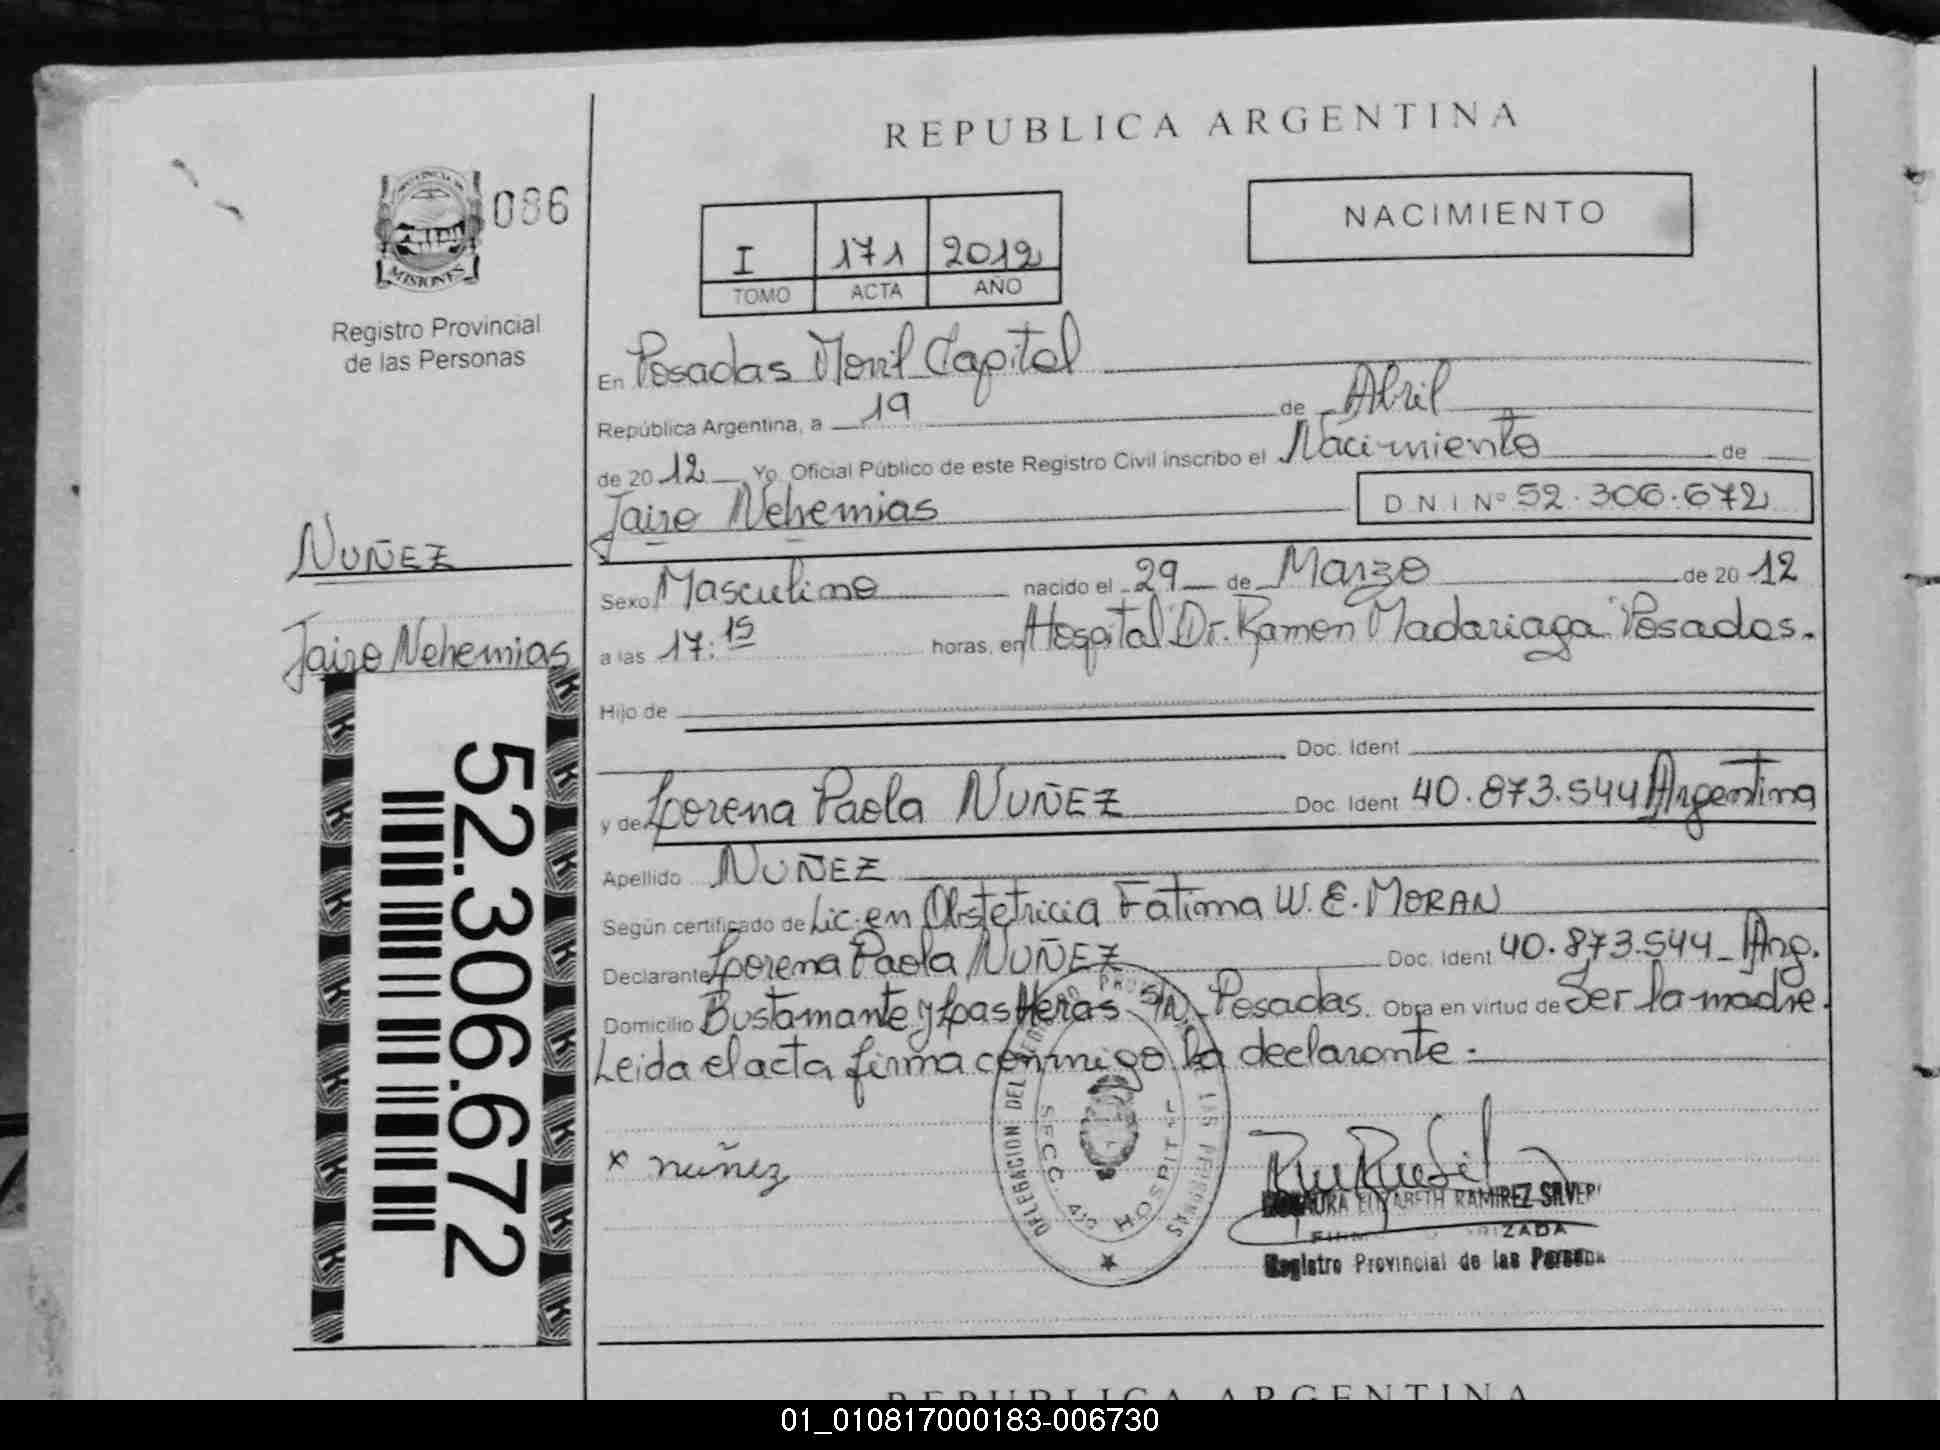 REPUBLICA ARGENTINA
PROVINCIA DE
MISIONES
086
Registro Provincial
de las Personas
I 171 2012
TOMO ACTA AÑO
NACIMIENTO
En Posadas Movil Capital
República Argentina, a 19 de Abril
de 2012 Yo. Oficial Público de este Registro Civil inscribo el Nacimiento de
Jairo Nehemias D N I Nº 52.306.672
NUÑEZ
Jairo Nehemias
52.306.672
Sexo Masculino nacido el 29 de Marzo de 2012
a las 17:15 horas, en Hospital Dr. Ramon Madariaga. Posadas.
Hijo de
Doc. Ident
y de Lorena Paola NUÑEZ Doc. Ident 40.873.544 Argentina
Apellido NUÑEZ
Según certificado de Lic. en Obstetricia Fatima W. E. MORAN
Declarante Lorena Paola NUÑEZ Doc. Ident 40.873.544 - Arg.
Domicilio Bustamante y Las Heras S/N - Posadas. Obra en virtud de Ser la madre.
Leida el acta firma conmigo la declarante.-
x nuñez
DELEGACION DEL LAS PERSONAS
SECC. 4º HOSPITAL
ELIZABETH RAMIREZ SILVER
Registro Provincial de las
REPUBLICA ARGENTINA
01_010817000183-006730